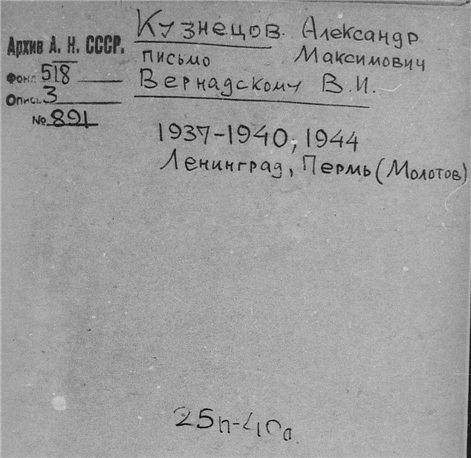 Архив А. Н. СССР.
Фонд 518
Опись 3
№ 891
Кузнецов Александр
Максимович
письмо
Вернадскому В.И.
1937-1940, 1944
Ленинград, Пермь (Молотов)
25п-41л.